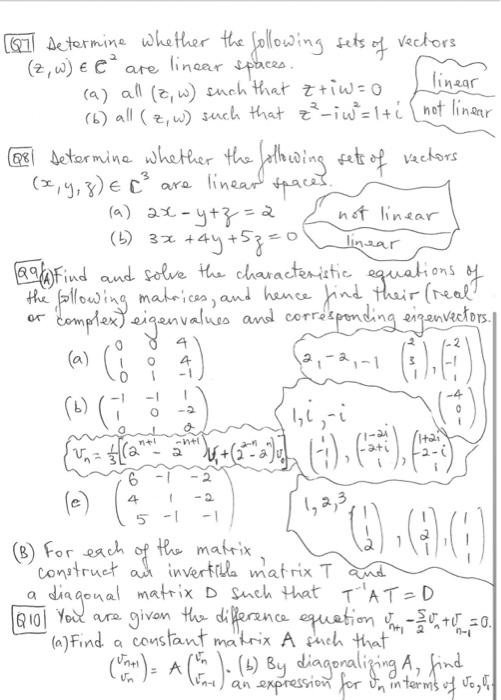 Q7 Determine whether the following sets of vectors
(z, w) ∈ C² are linear spaces.
(a) all (z, w) such that z + iw = 0
linear
(b) all (z, w) such that z² - iw² = 1+i
not linear
Q8 Determine whether the following sets of vectors
(x, y, z) ∈ C³ are linear spaces.
(a) 2x - y + z = 2
not linear
(b) 3x + 4y + 5z = 0
linear
Q9 (A) Find and solve the characteristic equations of
the following matrices, and hence find their (real
or complex) eigenvalues and corresponding eigenvectors.
(a) ( 0 0 4
1 0 4
0 1 -1 )
2, -2, -1 (2 3 1), (-2 -1 1), (-4 0 1)
(b) ( -1 -1 1
1 0 -2
0 1 2 )
1, i, -i
(1 -1 1), (1-2i -2+i 1), (1+2i -2-i 1)
(c) ( 6 -1 -2
4 1 -2
5 -1 -1 )
1, 2, 3
(1 1 2), (1 2 1), (1 1 1)
(B) For each of the matrix,
construct an invertible matrix T and
a diagonal matrix D such that T⁻¹AT = D
Q10 You are given the difference equation v_{n+1} - 5/2 v_n + v_{n-1} = 0.
(a) Find a constant matrix A such that
(v_{n+1} v_n) = A (v_n v_{n-1}). (b) By diagonalizing A, find
an expression for v_n in terms of v_0, v_1